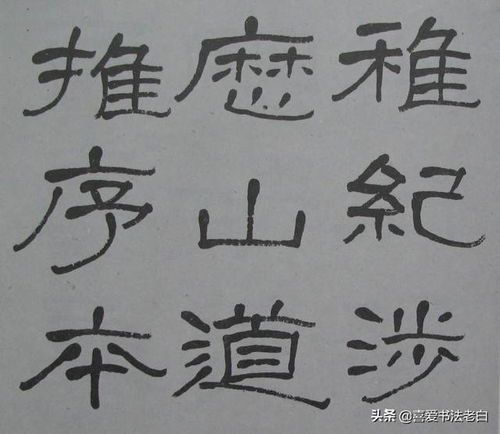 稚紀涉
歷山道
推序本
头条 @喜爱书法老白